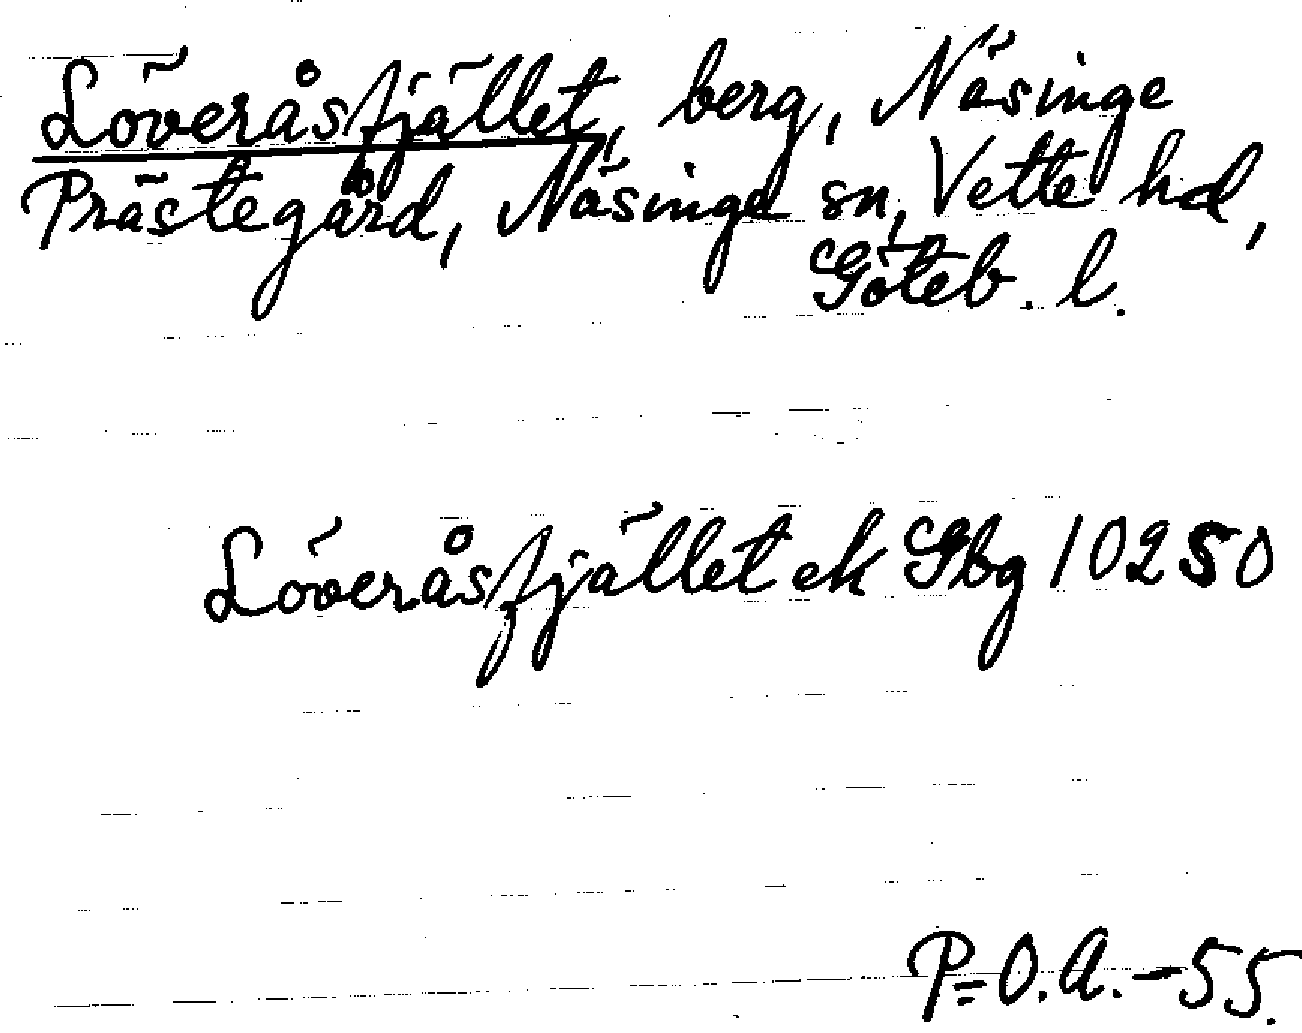 Löveråsfjället, berg, Näsinge
Prästegård, Näsinge sn, Vette hd,
Göteb. l.
Löveråsfjället ek Gbg 10250
P=O.A.-55.